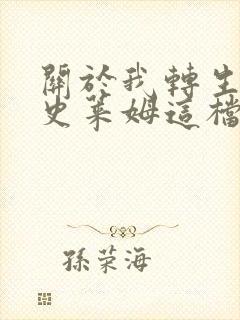 關於我轉生
史萊姆這檔
孫荣海